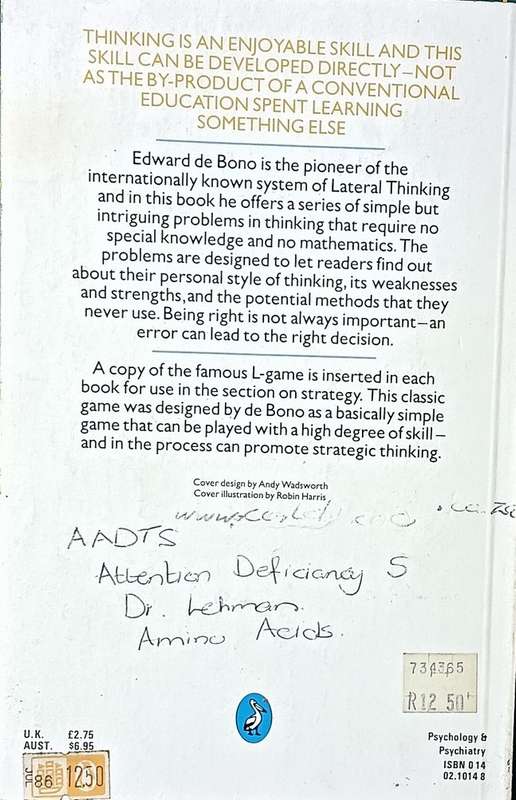 THINKING IS AN ENJOYABLE SKILL AND THIS
SKILL CAN BE DEVELOPED DIRECTLY–NOT
AS THE BY-PRODUCT OF A CONVENTIONAL
EDUCATION SPENT LEARNING
SOMETHING ELSE
Edward de Bono is the pioneer of the
internationally known system of Lateral Thinking
and in this book he offers a series of simple but
intriguing problems in thinking that require no
special knowledge and no mathematics. The
problems are designed to let readers find out
about their personal style of thinking, its weaknesses
and strengths, and the potential methods that they
never use. Being right is not always important–an
error can lead to the right decision.
A copy of the famous L-game is inserted in each
book for use in the section on strategy. This classic
game was designed by de Bono as a basically simple
game that can be played with a high degree of skill–
and in the process can promote strategic thinking.
Cover design by Andy Wadsworth
Cover illustration by Robin Harris
AADTS
Attention Deficiancy S
Dr. Lehman.
Amino Acids.
R12 50
U.K. £2.75
AUST. $6.95
JUL 86 1250
Psychology &
Psychiatry
ISBN 0 14
02.1014 8